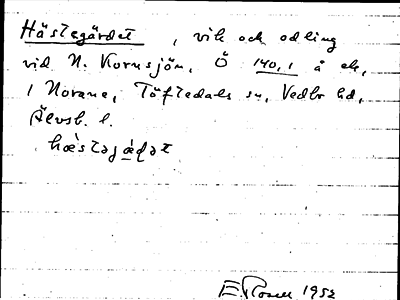 Hästegärdet, vik och odling
vid N. Kornsjön, Ö 140,1 å ek,
1 Norane, Töftedals sn, Vedbo hd,
Älvsb. l.
hæ̀stəjæ̀ɖət
E. Rosell 1952